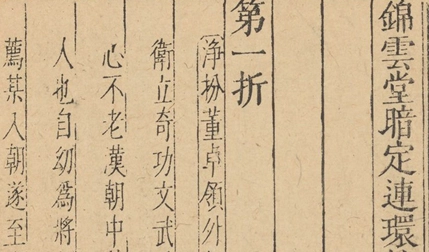 錦雲堂暗定連環
第一折
淨扮董卓領外
衛立奇功文武
心不老漢朝中
人也自幼爲將
薦某入朝遂至